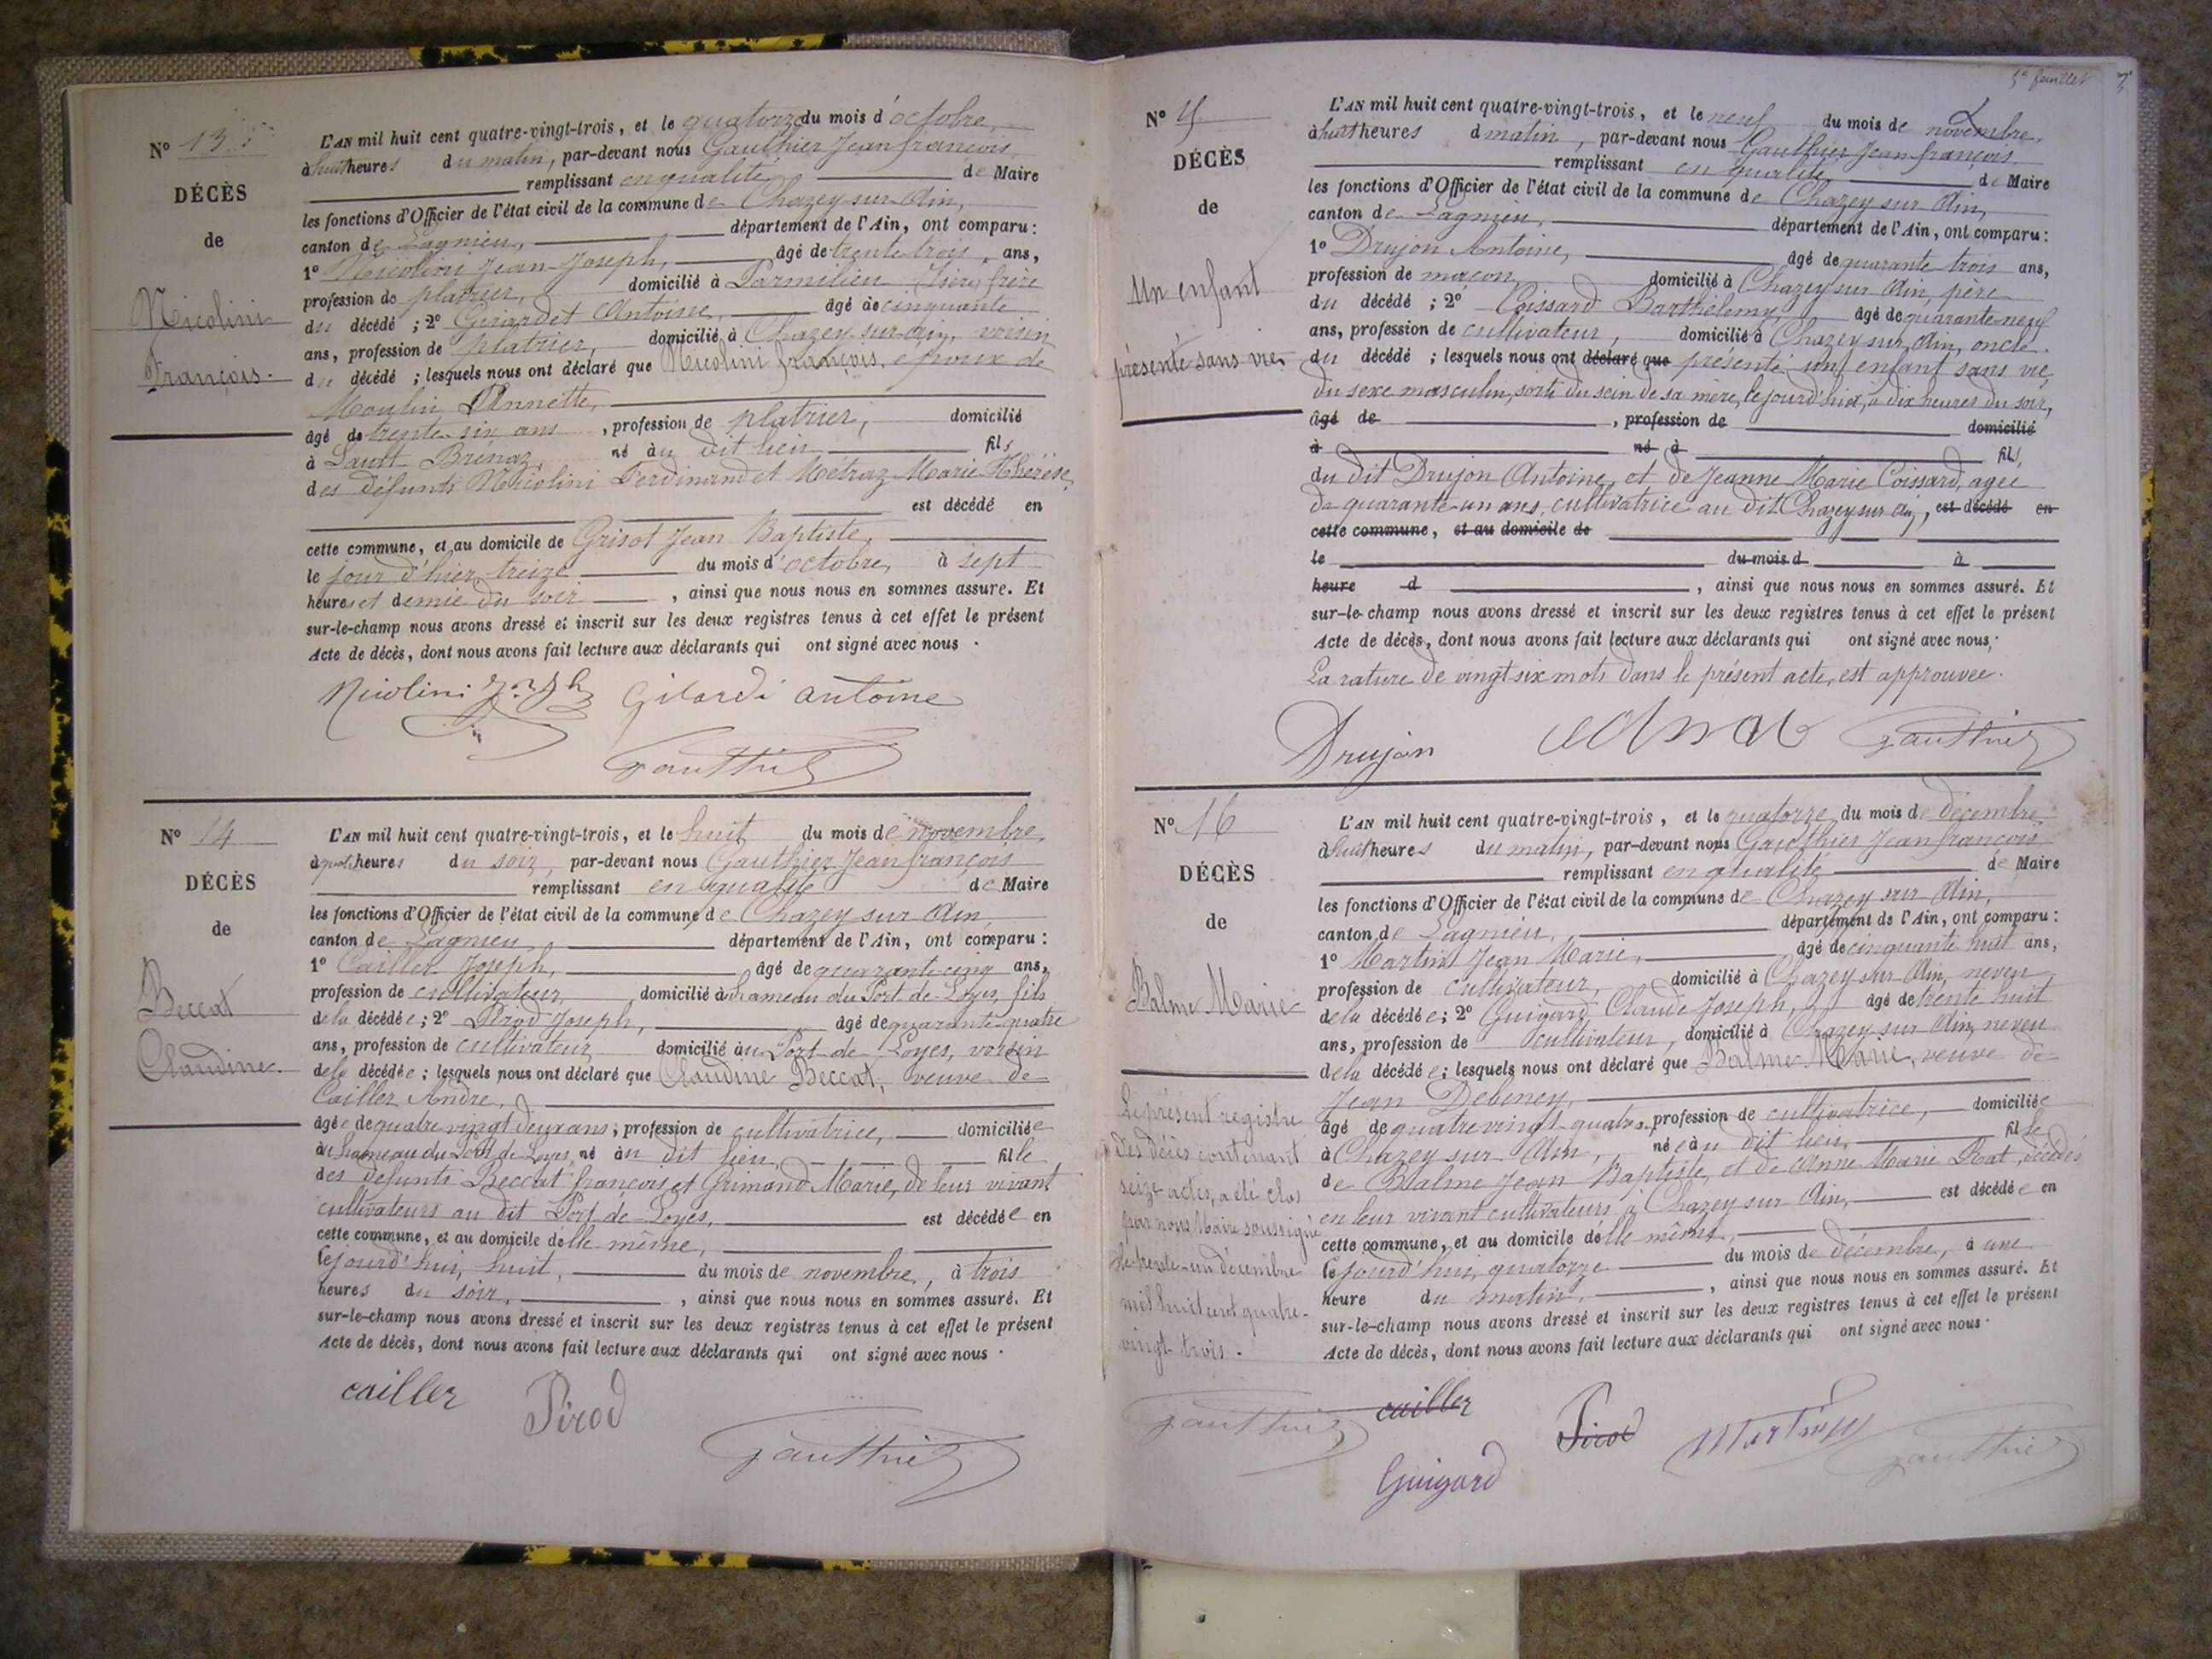 N° 13
DÉCÈS
de
Nicolini
François.
L'AN mil huit cent quatre-vingt-trois, et le quatorze du mois d'octobre,
à huit heures du matin, par-devant nous Gauthier Jean françois
remplissant en qualité de Maire
les fonctions d'Officier de l'état civil de la commune de Chazey sur Ain,
canton de Lagnieu, département de l'Ain, ont comparu :
1° Nicolini Jean-Joseph, âgé de trente trois ans,
profession de platrier, domicilié à Parmilieu Isère, frère
du décédé ; 2° Girardet Antoine, âgé de cinquante
ans, profession de platrier, domicilié à Chazey-sur-ain, voisin
du décédé ; lesquels nous ont déclaré que Nicolini françois, époux de
Moulin Annette,
âgé de trente six ans, profession de platrier, domicilié
à Saint Brénaz, né au dit lieu fils
des défunts Nicolini Ferdinand et Métraz Marie Thérèse,
est décédé en
cette commune, et au domicile de Grisot Jean Baptiste,
le jour d'hier, treize du mois d'octobre, à sept
heures et demie du soir, ainsi que nous nous en sommes assuré. Et
sur-le-champ nous avons dressé et inscrit sur les deux registres tenus à cet effet le présent
Acte de décès, dont nous avons fait lecture aux déclarants qui ont signé avec nous.
Nicolini Gilardi antoine
Gauthier
N° 14
DÉCÈS
de
Beccat
Claudine.
L'AN mil huit cent quatre-vingt-trois, et le huit du mois de novembre,
à heures du soir, par-devant nous Gauthier Jean françois
remplissant en qualité de Maire
les fonctions d'Officier de l'état civil de la commune de Chazey sur Ain,
canton de Lagnieu, département de l'Ain, ont comparu :
1° Cailler Joseph, âgé de quarante-cinq ans,
profession de cultivateur, domicilié à hameau du Port de-Loyes, fils
de la décédée ; 2° Pirod Joseph, âgé de quarante-quatre
ans, profession de cultivateur domicilié au Port-de-Loyes, voisin
de la décédée ; lesquels nous ont déclaré que Claudine Beccat, veuve de
Cailler André,
âgée de quatre vingt deux ans, profession de cultivatrice, domiciliée
au hameau du Port de Loyes, né au dit lieu, fille
des défunts Beccat françois et Grimand Marie, de leur vivant
cultivateurs au dit Port-de-Loyes, est décédée en
cette commune, et au domicile d'elle même,
le jourd'hui, huit, du mois de novembre, à trois
heures du soir, ainsi que nous nous en sommes assuré. Et
sur-le-champ nous avons dressé et inscrit sur les deux registres tenus à cet effet le présent
Acte de décès, dont nous avons fait lecture aux déclarants qui ont signé avec nous.
cailler Pirod
Gauthier
5e feuillet
N° 15
DÉCÈS
de
Un enfant
présenté sans vie.
L'AN mil huit cent quatre-vingt-trois, et le neuf du mois de novembre,
à huit heures d matin, par-devant nous Gauthier Jean françois
remplissant en qualité de Maire
les fonctions d'Officier de l'état civil de la commune de Chazey sur Ain,
canton de Lagnieu, département de l'Ain, ont comparu :
1° Drujon Antoine, âgé de quarante trois ans,
profession de maçon domicilié à Chazey sur Ain, père
du décédé ; 2° Coissard Barthélemy, âgé de quarante-neuf
ans, profession de cultivateur, domicilié à Chazey sur Ain, oncle
du décédé ; lesquels nous ont déclaré que présenté un enfant sans vie,
du sexe masculin, sorti du sein de sa mère, le jour d'hier, à dix heures du soir,
âgé de , profession de domicilié
à né à fils
du dit Drujon Antoine, et de Jeanne Marie Coissard, agée
de quarante-un ans, cultivatrice au dit Chazey sur Ain, est décédé en
cette commune, et au domicile de
le du mois d à
heure d , ainsi que nous nous en sommes assuré. Et
sur-le-champ nous avons dressé et inscrit sur les deux registres tenus à cet effet le présent
Acte de décès, dont nous avons fait lecture aux déclarants qui ont signé avec nous.
La rature de vingt six mots dans le présent acte, est approuvée.
Drujon Gauthier
N° 16
DÉCÈS
de
Balme Marie
L'AN mil huit cent quatre-vingt-trois, et le quatorze du mois de décembre,
à huit heures du matin, par-devant nous Gauthier Jean françois
remplissant en qualité de Maire
les fonctions d'Officier de l'état civil de la commune de Chazey sur Ain,
canton de Lagnieu, département de l'Ain, ont comparu :
1° Martin Jean Marie, âgé de cinquante huit ans,
profession de cultivateur, domicilié à Chazey sur Ain, neveu
de la décédée ; 2° Guigard Claude Joseph, âgé de trente huit
ans, profession de cultivateur, domicilié à Chazey sur Ain, neveu
de la décédée ; lesquels nous ont déclaré que Balme Marie, veuve de
Jean Debeney,
âgé de quatre vingt-quatre, profession de cultivatrice, domiciliée
à Chazey sur Ain, née au dit lieu, fille
de Balme Jean Baptiste, et de Anne Marie Rat, décédés
en leur vivant cultivateurs à Chazey sur Ain, est décédée en
cette commune, et au domicile d'elle même,
le jourd'hui, quatorze du mois de décembre, à une
heure du matin, ainsi que nous nous en sommes assuré. Et
sur-le-champ nous avons dressé et inscrit sur les deux registres tenus à cet effet le présent
Acte de décès, dont nous avons fait lecture aux déclarants qui ont signé avec nous.
Le présent registre
des décès contenant
seize actes, a été clos
par nous Maire soussigné
le trente-un décembre
mil huit cent quatre-
vingt trois.
Gauthier cailler Pirod Martin Gauthier
Guigard